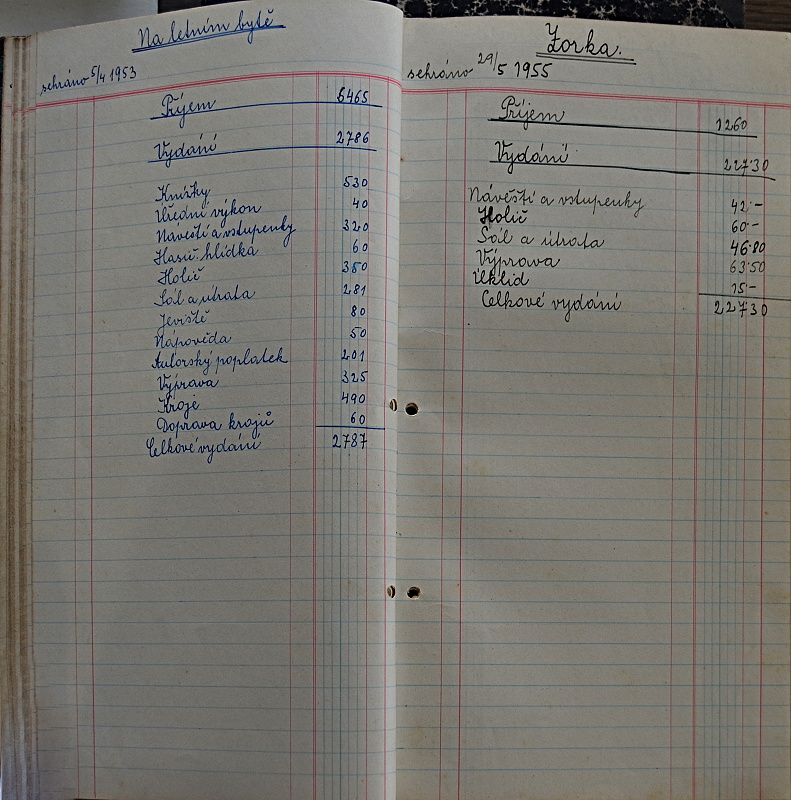 Na letním bytě
sehráno 5/4 1953
Příjem 6465
Vydání 2786
Knížky 530
Úřední výkon 40
Návěští a vstupenky 320
Hasič. hlídka 60
Holič 350
Sál a útrata 281
Jeviště 80
Nápověda 50
Autorský poplatek 201
Výprava 325
Kroje 490
Doprava krojů 60
Celkové vydání 2787
Zorka.
sehráno 29/5 1955
Příjem 1260
Vydání 227·30
Návěští a vstupenky 42·-
Holič 60·-
Sál a útrata 46·80
Výprava 63·50
Úklid 15·-
Celkové vydání 227·30